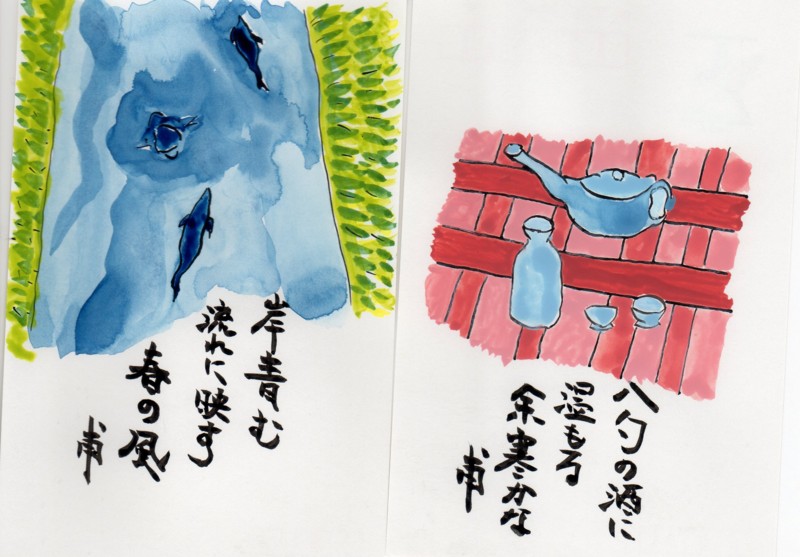 岸青む
流れに映す
春の風
甫
八勺の酒に
温もる
余寒かな
甫